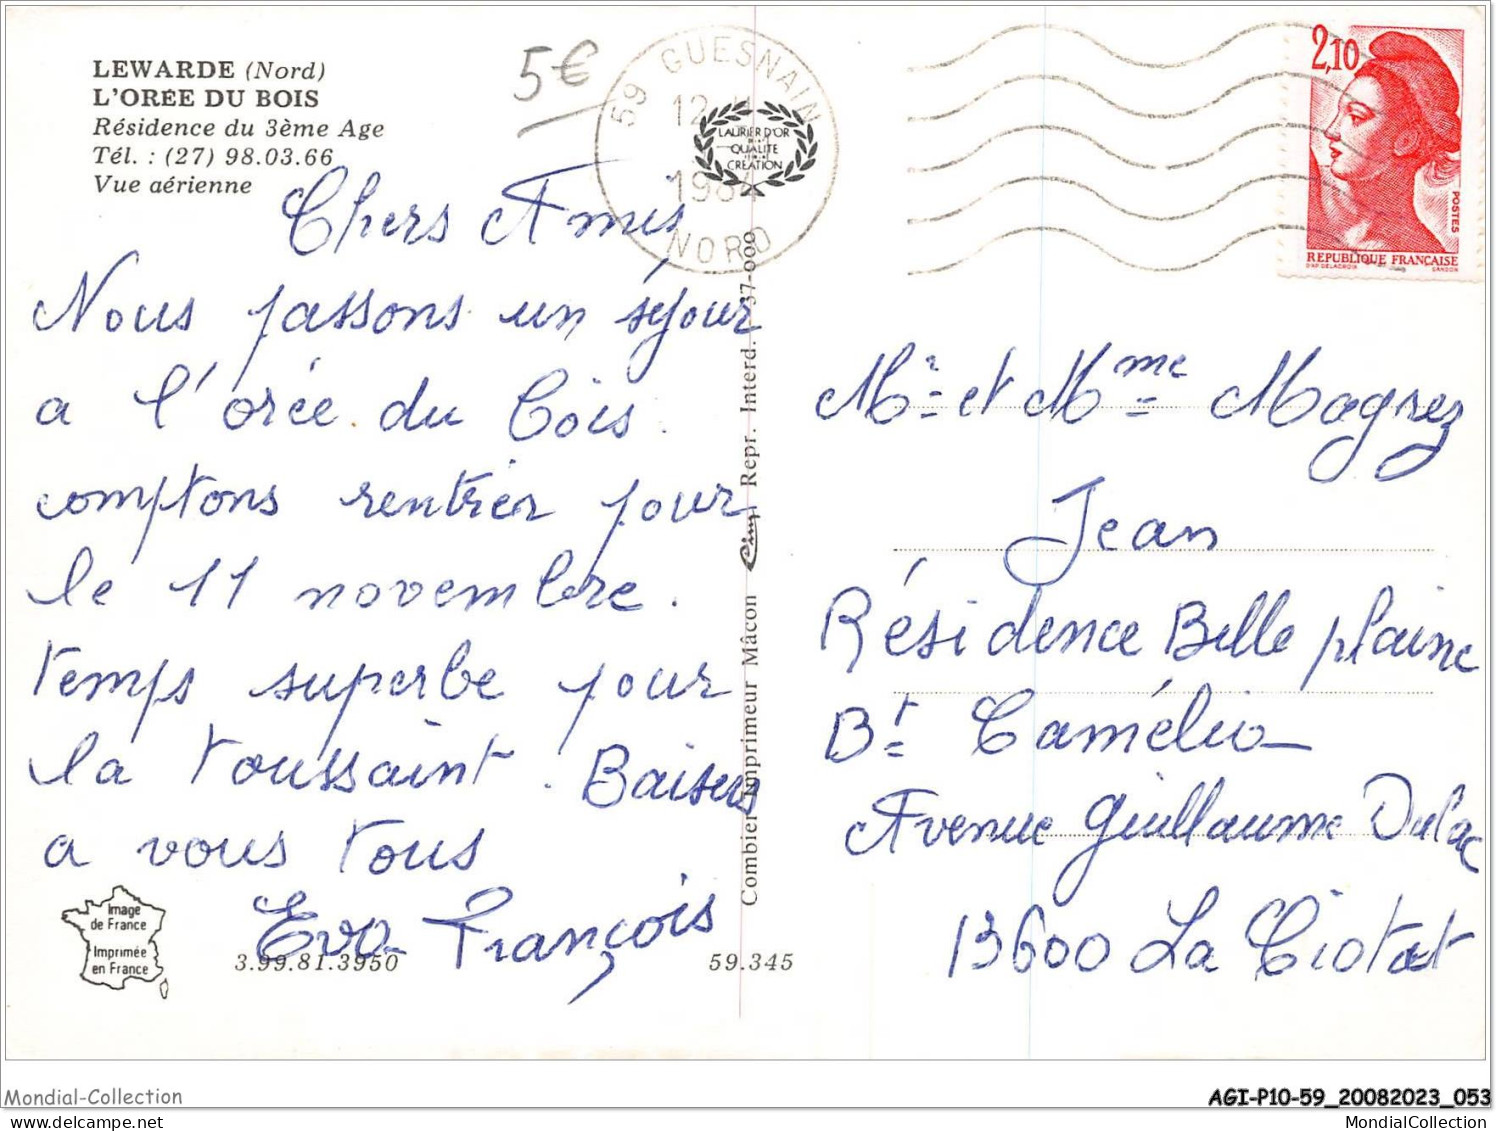 LEWARDE (Nord)
L'ORÉE DU BOIS
Résidence du 3ème Age
Tél. : (27) 98.03.66
Vue aérienne
5€
59 GUESNAIN
12
1984
NORD
LAURIER D'OR
DE LA
QUALITE
CREATION
2,10
POSTES
REPUBLIQUE FRANÇAISE
D'AP. DELACROIX GANDON
Chers Amis
Nous passons un séjour
a l'orée du bois.
comptons rentrer pour
le 11 novembre.
temps superbe pour
la toussaint. Baisers
a vous tous
Eva François
Combier Imprimeur Mâcon Cim Repr. Interd. 37-000
Mr et Mme Magnez
Jean
Résidence Belle plaine
Bt Camélia
Avenue Guillaume Dulac
13600 La Ciotat
Image
de France
Imprimée
en France
3.99.81.3950
59.345
Mondial-Collection
AGI-P10-59_20082023_053
www.delcampe.net
MondialCollection